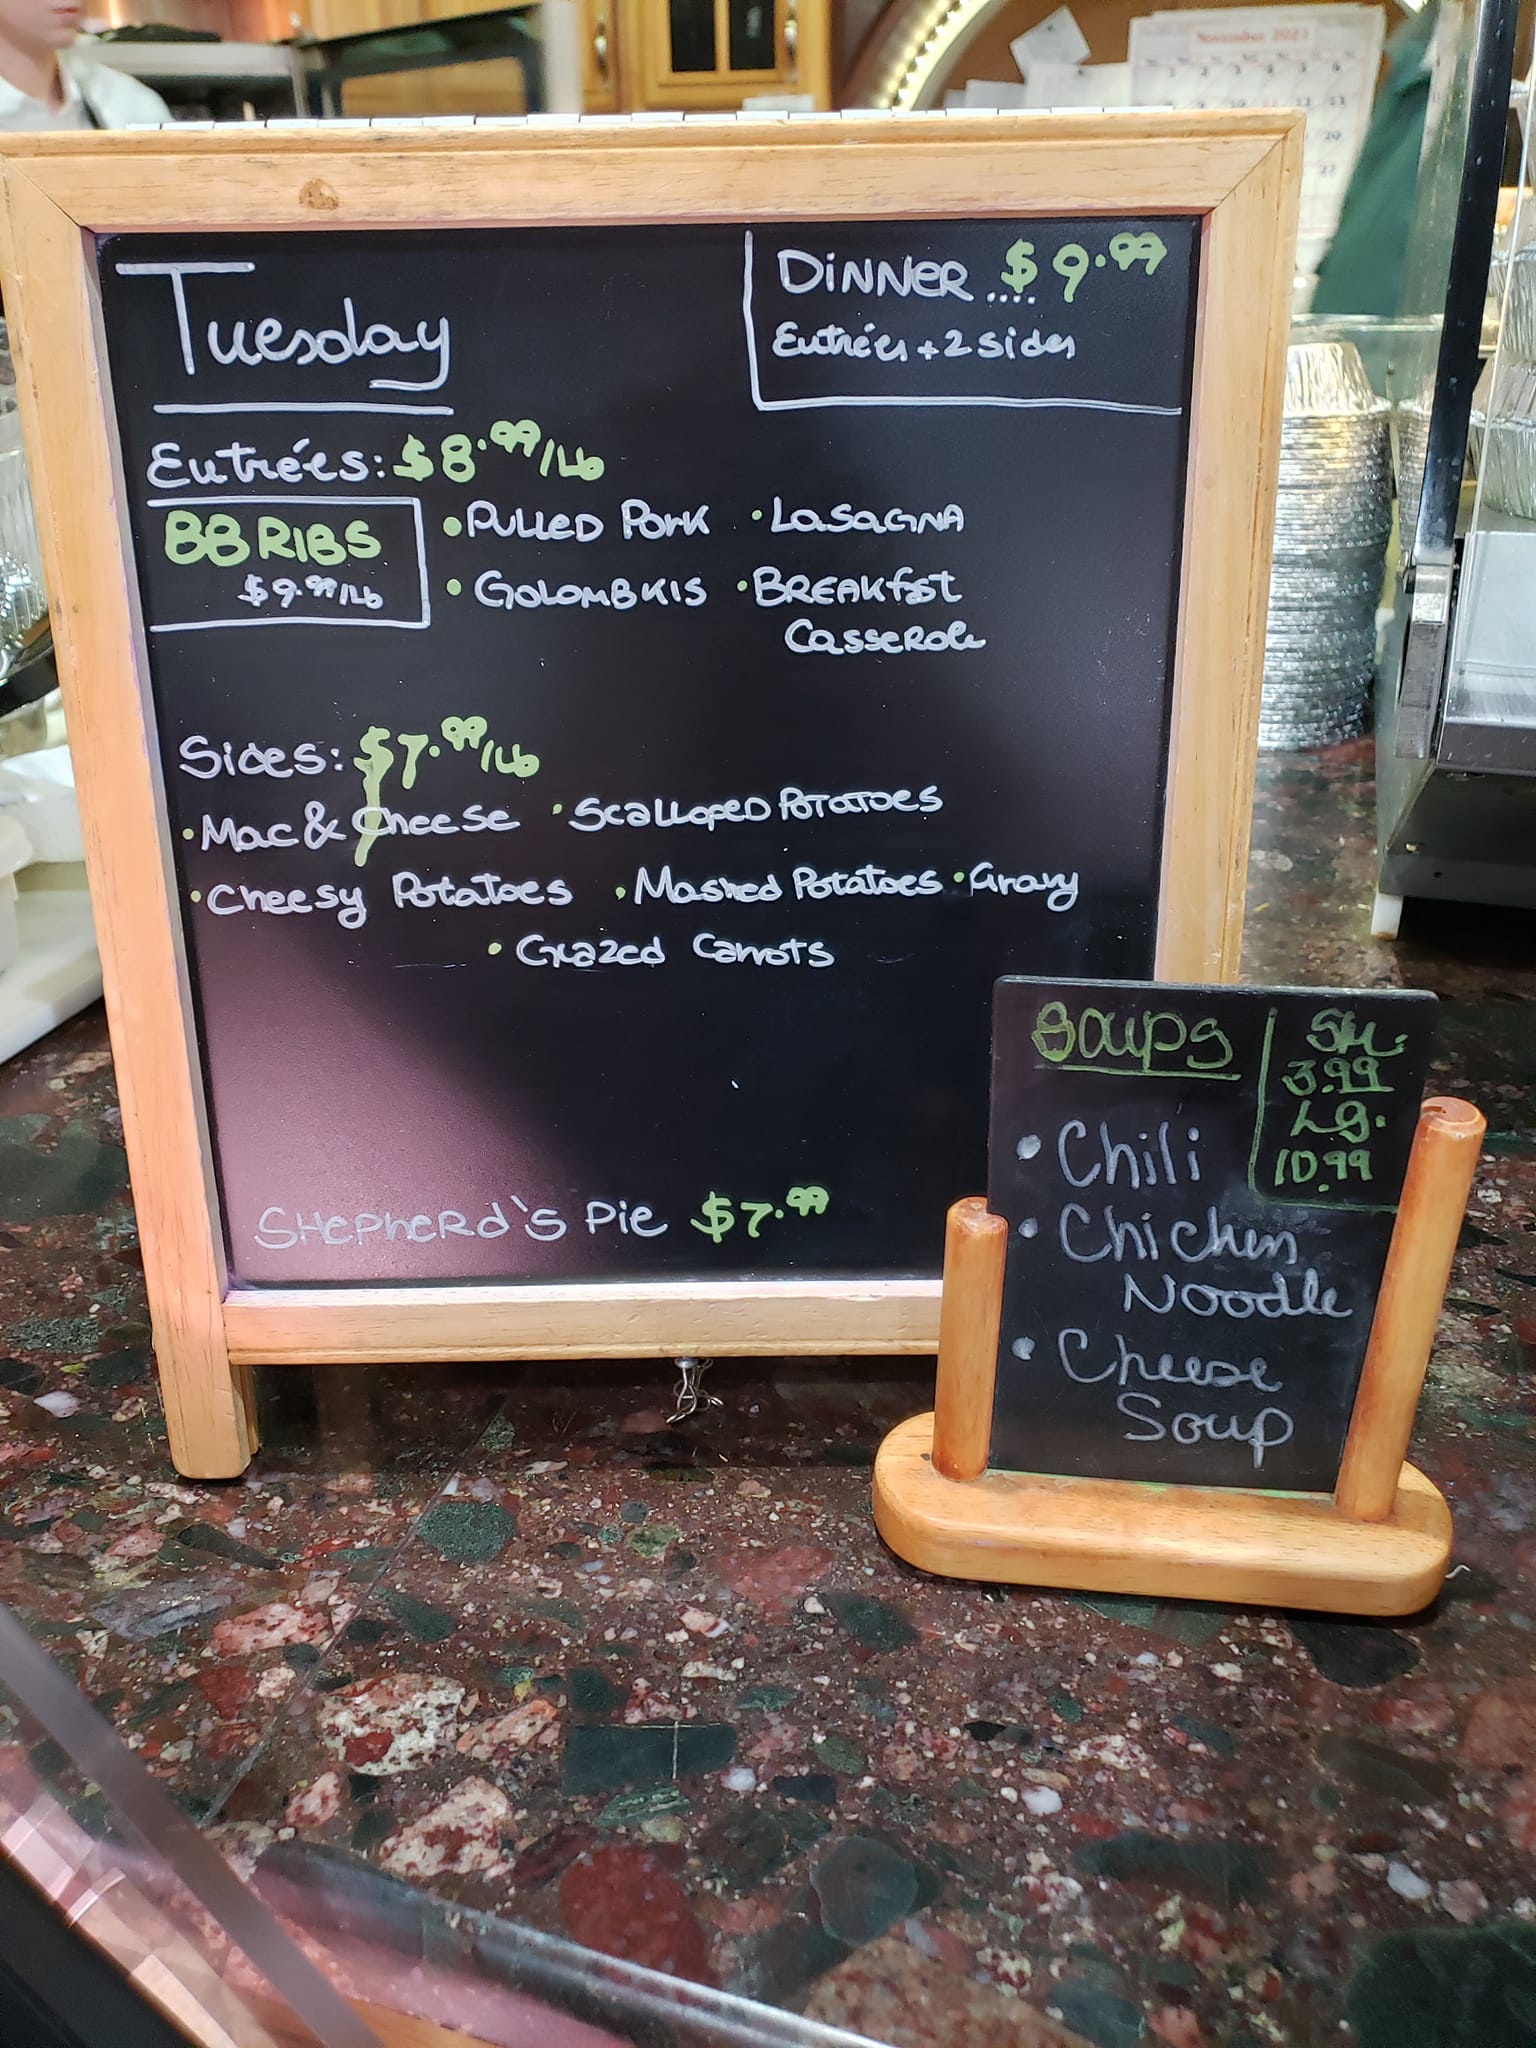 November 2021
1 2 3 4 5 6
9 10 11 12 13
20
27
Tuesday
DiNNER .... $9.99
Entrées + 2 sides
Entrées: $8.99/Lb
BB RIBS
$9.99/Lb
• PULLED Pork • LaSaGNA
• GOLOMBKIS • BREAKfast
CasseRole
Sides: $7.99/Lb
• Mac & Cheese • Scalloped Potatoes
• Cheesy Potatoes • Mashed Potatoes • Gravy
• Glazed Carrots
SHepHeRd's Pie $7.99
Soups
Sm.
3.99
Lg.
10.99
• Chili
• Chicken
Noodle
• Cheese
Soup